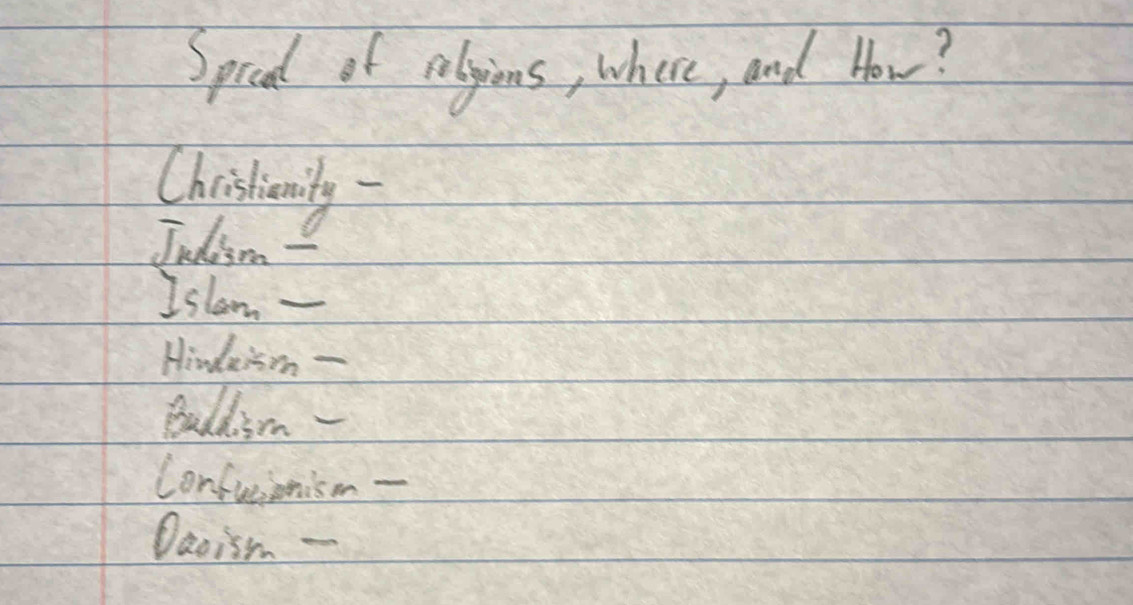 Spread of religions, where, and How?
Christianity -
Judism -
Islam -
Hinduism -
Buddism -
Confucionism -
Daoism -